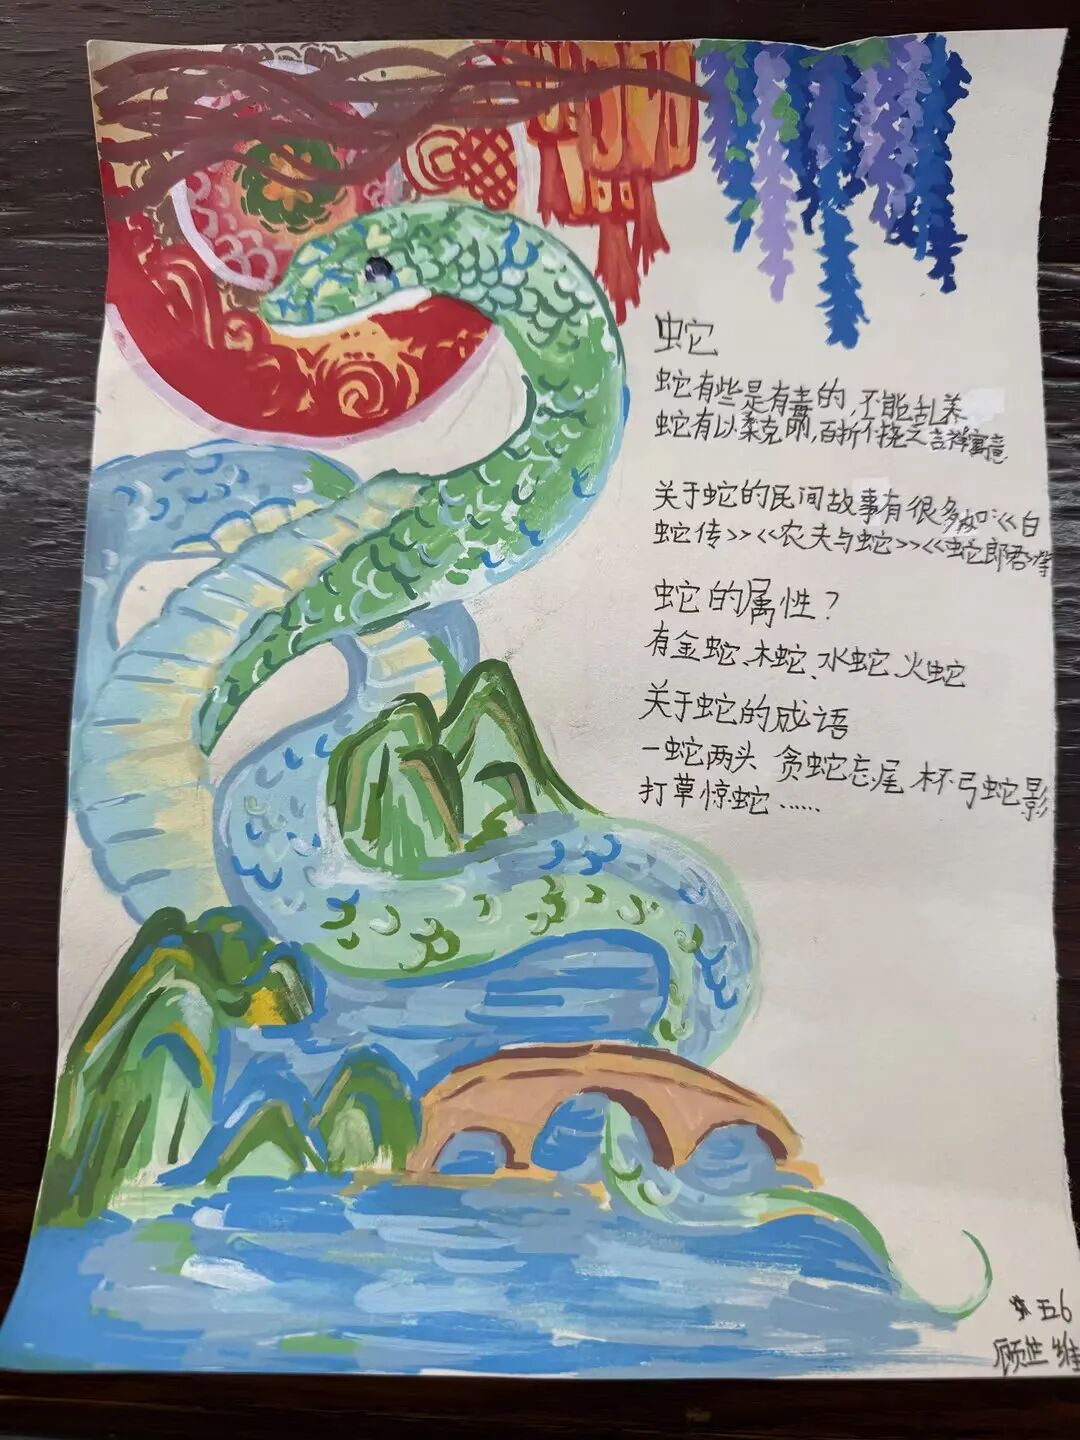 蛇
蛇有些是有毒的,不能乱养
蛇有以柔克刚,百折不挠之吉祥寓意
关于蛇的民间故事有很多如:<<白
蛇传>><<农夫与蛇>><<蛇郎君>>等
蛇的属性?
有金蛇、木蛇、水蛇、火蛇
关于蛇的成语
一蛇两头 贪蛇忘尾 杯弓蛇影
打草惊蛇……
五6
顾 维